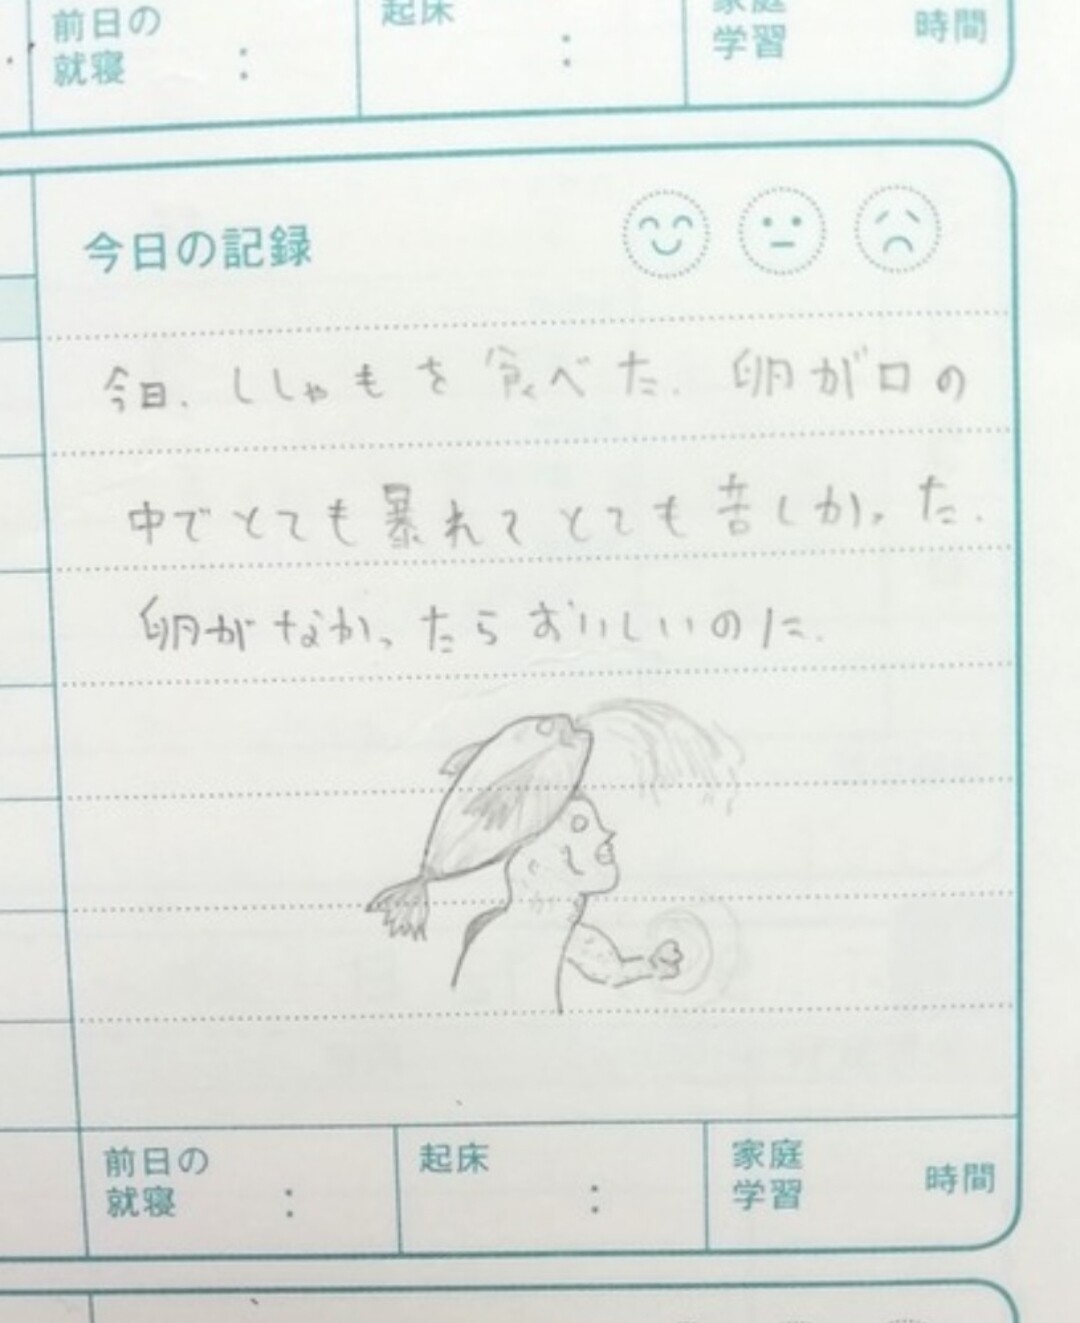 前日の
就寝 :
起床 :
家庭
学習 時間
今日の記録
今日、ししゃもを食べた。卵が口の
中でとても暴れてとても苦しかった。
卵がなかったらおいしいのに。
前日の
就寝 :
起床 :
家庭
学習 時間